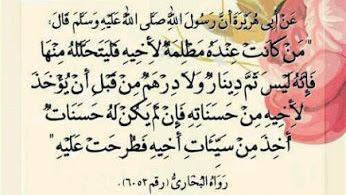 عَنْ أَبِي هُرَيْرَةَ أَنَّ رَسُولَ اللهِ صَلَّى اللهُ عَلَيْهِ وَسَلَّمَ قَالَ:
"مَنْ كَانَتْ عِنْدَهُ مَظْلَمَةٌ لِأَخِيهِ فَلْيَتَحَلَّلْهُ مِنْهَا
فَإِنَّهُ لَيْسَ ثَمَّ دِينَارٌ وَلَا دِرْهَمٌ مِنْ قَبْلِ أَنْ يُؤْخَذَ
لِأَخِيهِ مِنْ حَسَنَاتِهِ فَإِنْ لَمْ يَكُنْ لَهُ حَسَنَاتٌ
أُخِذَ مِنْ سَيِّئَاتِ أَخِيهِ فَطُرِحَتْ عَلَيْهِ"
رَوَاهُ الْبُخَارِيُّ (رقم ٦٠٥٣)